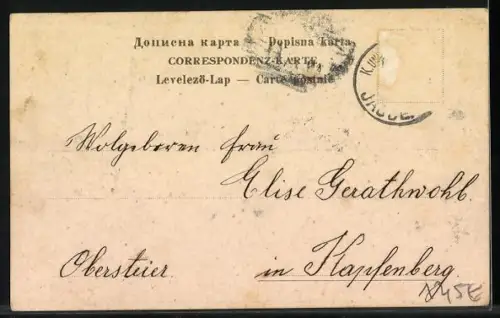 Дописна карта — Dopisna karta
CORRESPONDENZ-KARTE
Levelező-Lap — Carte postale
Wolgeboren Frau
Elise Gerathwohl
Obersteier.
in Kapfenberg.